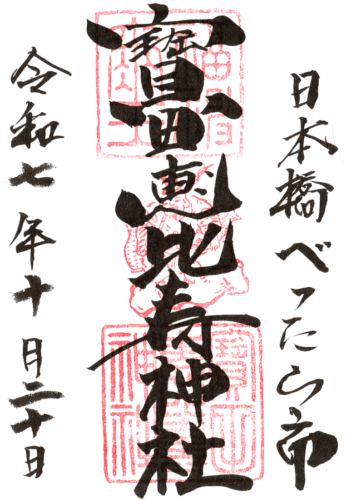 日本橋べったら市
寶田恵比寿神社
令和七年十月二十日